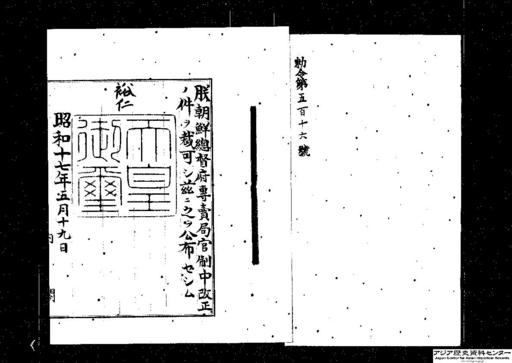 勅令第五百十六號
朕朝鮮總督府專賣局官制中改正
ノ件ヲ裁可シ茲ニ之ヲ公布セシム
裕仁
天皇御璽
昭和十七年五月十九日
内閣
アジア歴史資料センター
Japan Center for Asian Historical Records